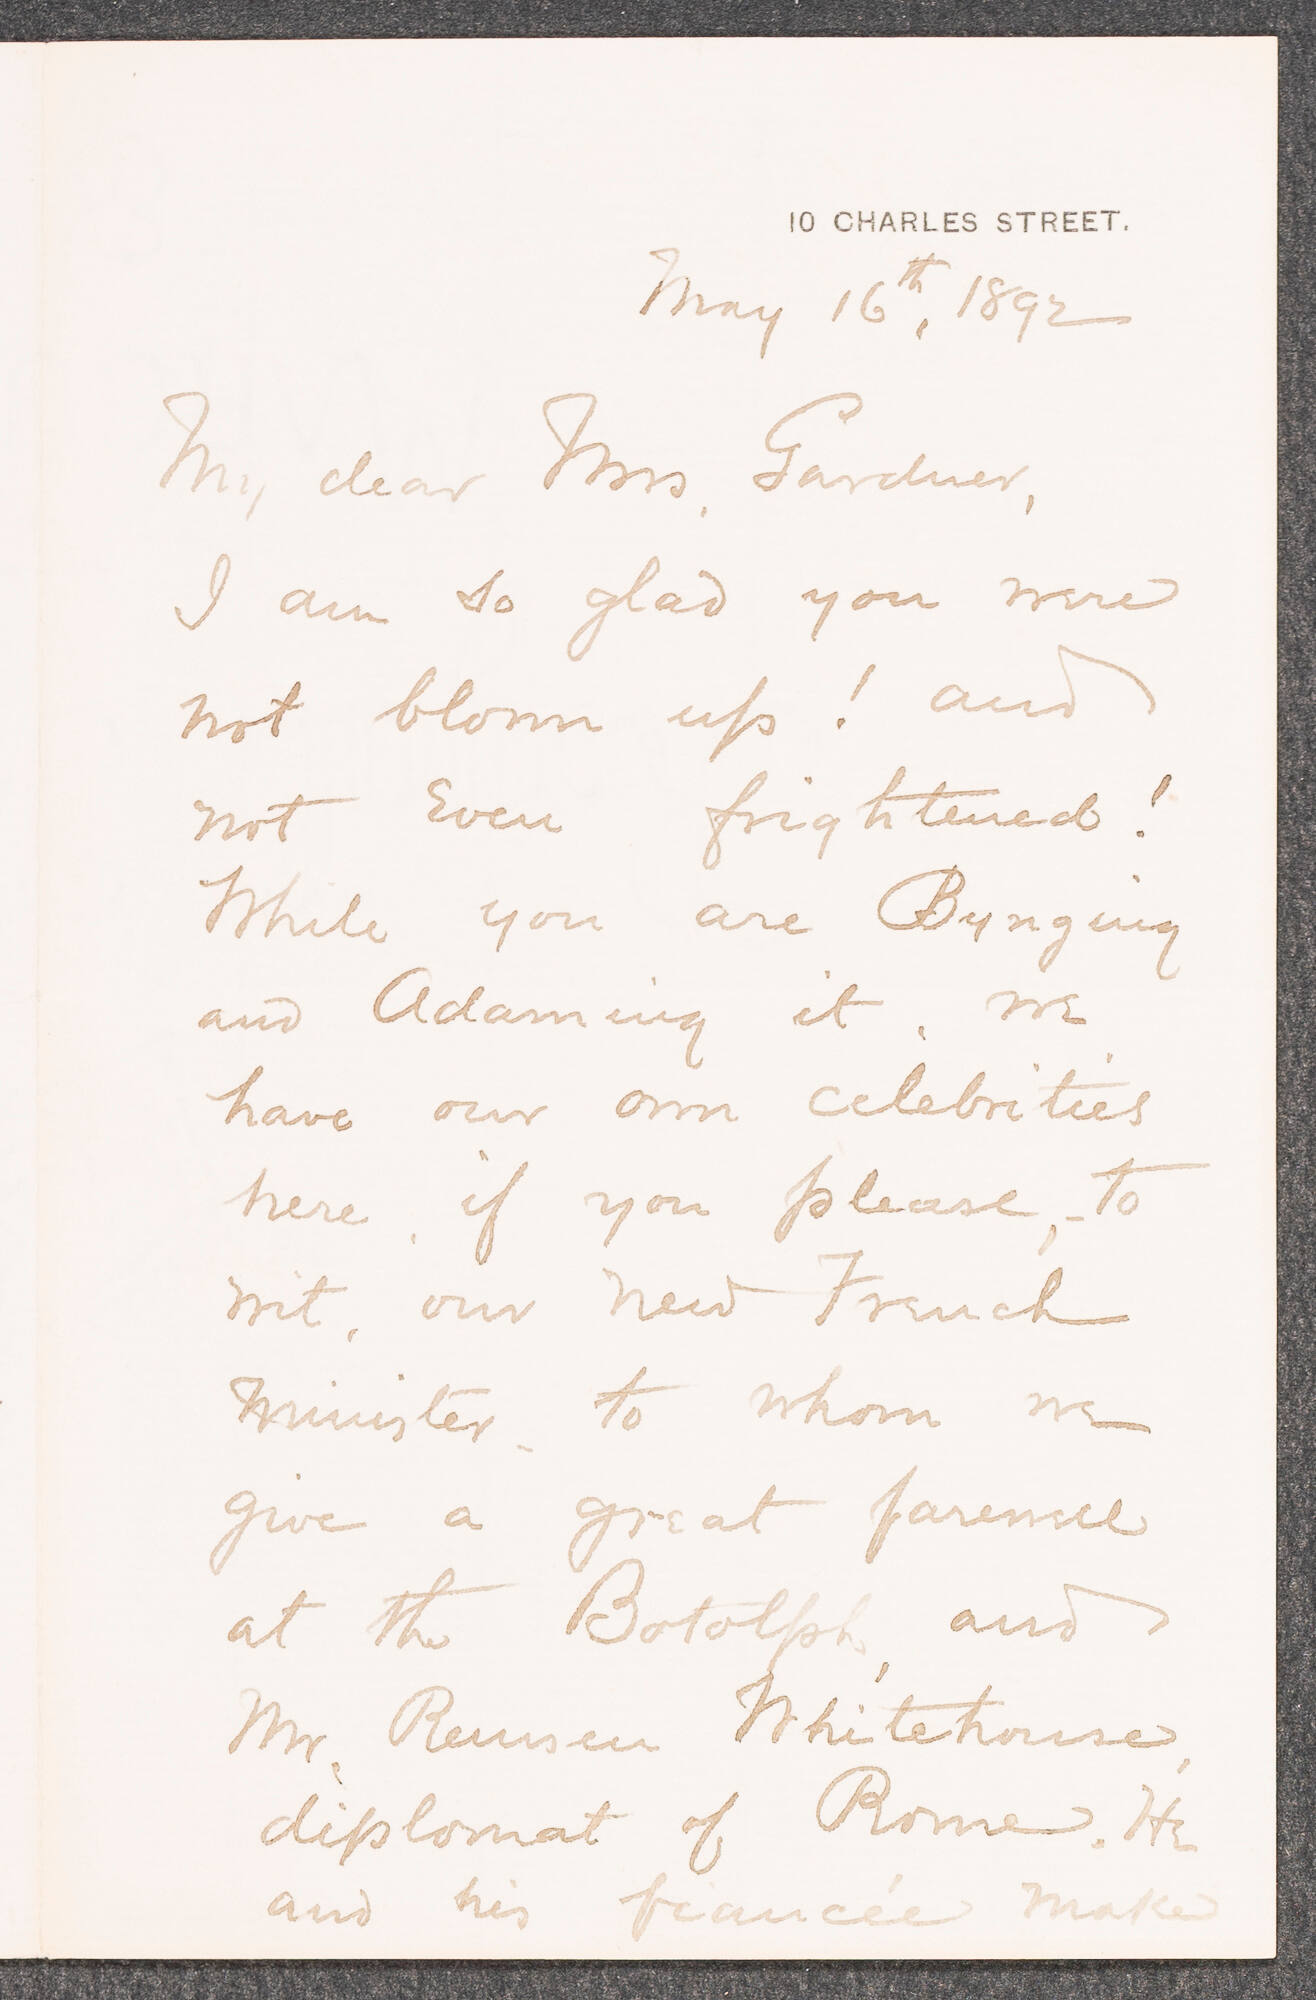 10 CHARLES STREET.
May 16th, 1892
My dear Mrs. Gardner,
I am so glad you were
not blown up! and
not even frightened!
While you are Bynging
and Adaming it, we
have our own celebrities
here, if you please,- to
wit, our new French
Minister - to whom we
give a great farewell
at the Botolph, and
Mr. Remsen Whitehouse,
diplomat of Rome. He
and his fiancée make